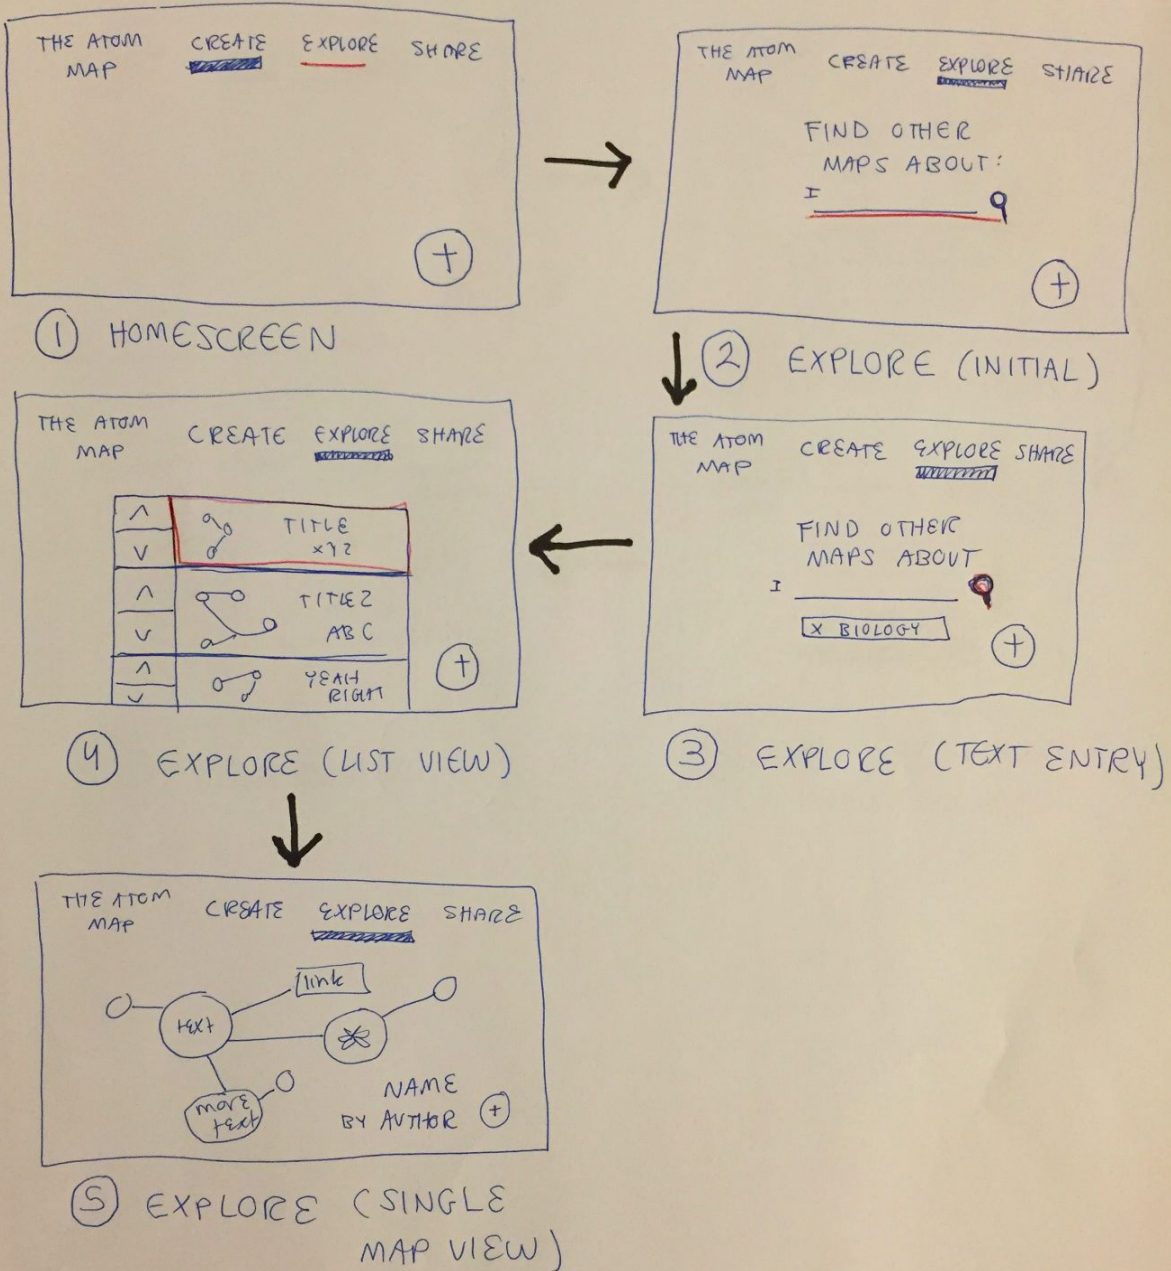 THE ATOM CREATE EXPLORE SHARE
MAP
+
1 HOMESCREEN
THE ATOM CREATE EXPLORE SHARE
MAP
FIND OTHER
MAPS ABOUT:
I
+
2 EXPLORE (INITIAL)
THE ATOM CREATE EXPLORE SHARE
MAP
FIND OTHER
MAPS ABOUT
I
X BIOLOGY
+
3 EXPLORE (TEXT ENTRY)
THE ATOM CREATE EXPLORE SHARE
MAP
TITLE
XYZ
TITLE 2
ABC
YEAH
RIGHT
+
4 EXPLORE (LIST VIEW)
THE ATOM CREATE EXPLORE SHARE
MAP
link
text
more
text
NAME
BY AUTHOR +
5 EXPLORE (SINGLE
MAP VIEW)